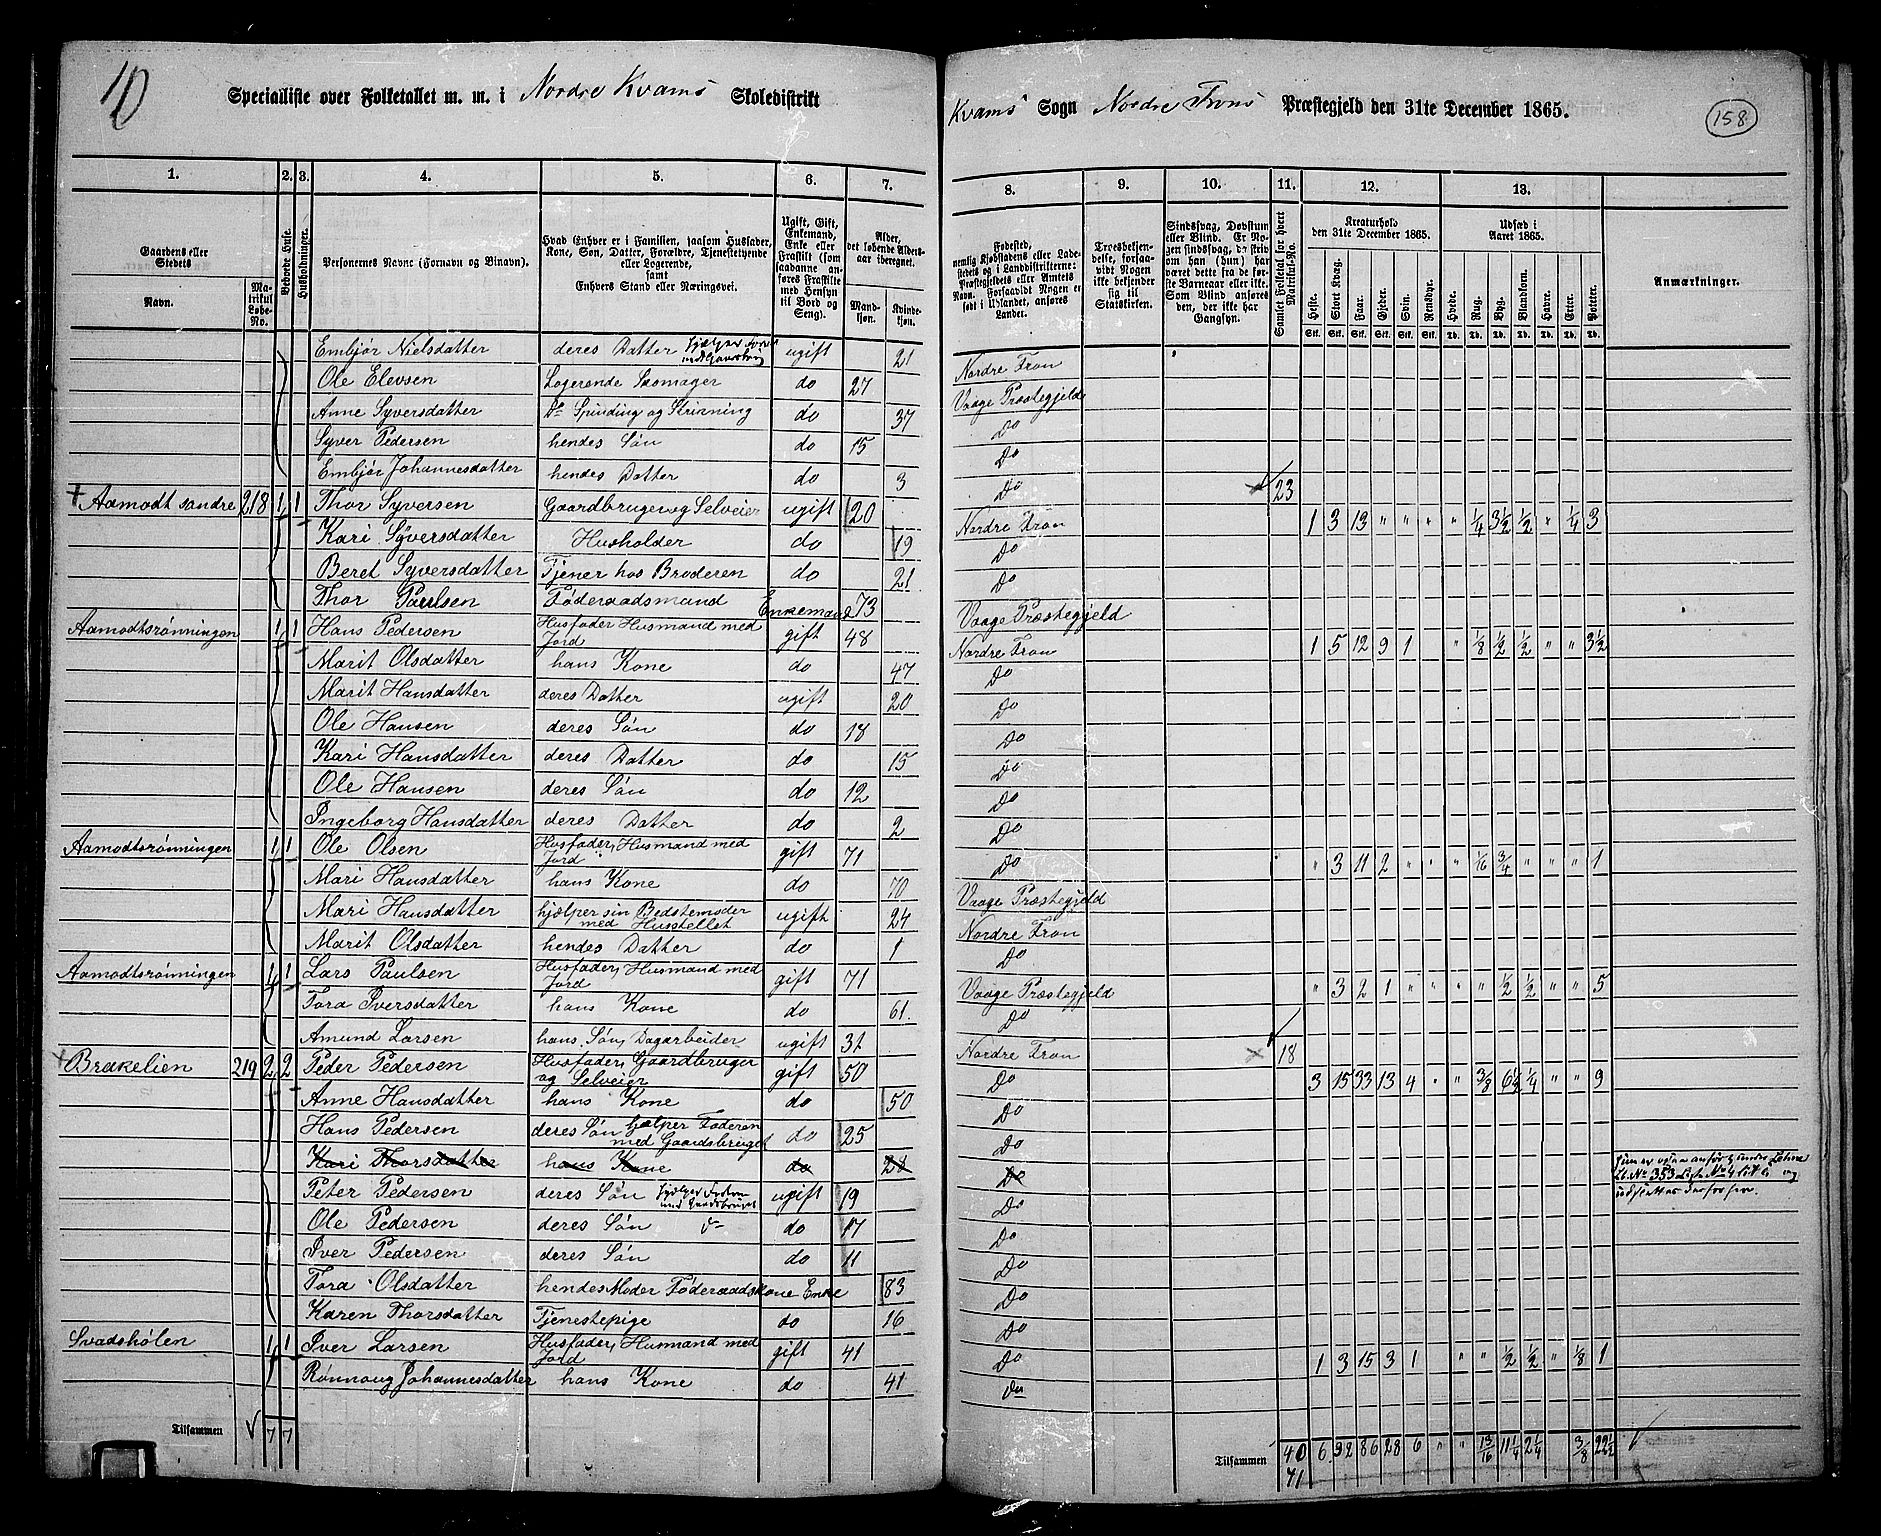 10
Specialliste over Folketallet m. m. i Nordre Kvams Skoledistrikt
Kvams Sogn Nordre Frons Præstegjeld den 31te December 1865.
158
1. 2. 3. 4. 5. 6. 7. 8. 9. 10. 11. 12. 13.
Gaardens eller Stedets
Navn.
Matrikul Løbe-No.
Beboede Huse.
Husholdninger.
Personernes Navne (Fornavn og Binavn).
Hvad Enhver er i Familien, saasom Husfader, Kone, Søn, Datter, Forældre, Tjenestetyende eller Logerende,
samt
Enhvers Stand eller Næringsvei.
Ugift, Gift, Enkemand, Enke eller Fraskilt (som saadanne anføres Fraskilte med Hensyn til Bord og Seng).
Alder, det løbende Alders-aar iberegnet.
Mandkjøn.
Kvindekjøn.
Fødested,
nemlig Kjøbstadens eller Ladestedets og i Landdistrikterne: Præstegjeldets eller Amtets Navn. Forsaavidt Nogen er født i Udlandet, anføres Landet.
Troesbekjendelse, forsaavidt Nogen ikke bekjender sig til Statskirken.
Sindssvag, Døvstum eller Blind. Er Nogen sindssvag, da skriv om han (hun) har været dette fra de første Barneaar eller ikke. Som Blind anføres den, der ikke har Gangsyn.
Samlet Folketal for hvert Matrikul-No.
Kreaturhold den 31te December 1865.
Heste. Stort Kvæg. Faar. Gjeder. Svin. Rensdyr.
Udsæd i Aaret 1865.
Hvede. Rug. Byg. Blandkorn. Havre. Erter. Poteter.
Stk. Stk. Stk. Stk. Stk. Stk. Td. Td. Td. Td. Td. Td. Td.
Anmærkninger.
Embjør Nielsdatter deres Datter ugift 21 Nordre Fron
Ole Elevsen Logerende Skomager do 27 Vaage Præstegjeld
Anne Syversdatter Do Spinding og Strikning do 37 Do
Syver Pedersen hendes Søn do 15 Do
Embjør Johannesdatter hendes Datter do 3 Do 23
Aamodt søndre 218 1 1 Thor Syversen Gaardbruger og Selveier ugift 20 Nordre Fron 1 3 13 " " " " 1/4 3 1/2 1/2 " 1/4 3
Kari Syversdatter Husholder do 19 Do
Beret Syversdatter Tjener hos Broderen do 21 Do
Thor Paulsen Føderaadsmand Enkemand 73 Vaage Præstegjeld
Aamodtsrønningen 1 1 Hans Pedersen Husfader Husmand med Jord gift 48 Nordre Fron 1 5 12 9 1 " " 1/8 1/2 1/2 " " 3 1/2
Marit Olsdatter hans Kone do 47 Do
Marit Hansdatter deres Datter ugift 20 Do
Ole Hansen deres Søn do 18 Do
Kari Hansdatter deres Datter do 15 Do
Ole Hansen deres Søn do 12 Do
Ingeborg Hansdatter deres Datter do 2 Do
Aamodtsrønningen 1 1 Ole Olsen Husfader, Husmand med Jord gift 71 Do " 3 11 2 " " " 1/16 3/4 " " " 1
Mari Hansdatter hans Kone do 70 Vaage Præstegjeld
Mari Hansdatter hjælper sin Bedstemoder med Husstellet ugift 24 Nordre Fron
Marit Olsdatter hendes Datter do 1 Do
Aamodtsrønningen 1 1 Lars Paulsen Husfader, Husmand med Jord gift 71 Vaage Præstegjeld " 3 2 1 " " " " 1/2 1/2 " " 5
Tora Iversdatter hans Kone do 61 Do
Amund Larsen hans Søn, Dagarbeider ugift 31 Nordre Fron 18
Brakelien 219 2 2 Peder Pedersen Husfader, Gaardbruger og Selveier gift 50 Do 3 15 33 13 4 " " 3/8 6 1/2 1/4 " " 9
Anne Hansdatter hans Kone do 50 Do
Hans Pedersen deres Søn hjælper Faderen med Gaardsbruget do 25 Do
Kari Thorsdatter hans Kone do 28 Do
Peter Pedersen deres Søn hjælper Faderen med Gaardsbruget ugift 19 Do
Ole Pedersen deres Søn do 17 Do
Iver Pedersen deres Søn do 11 Do
Tora Olsdatter hendes Moder Føderaadskone Enke 83 Do
Karen Thorsdatter Tjenestepige do 16 Do
Svadshølen 1 1 Iver Larsen Husfader, Husmand med Jord gift 41 Do 1 3 15 3 1 " " 1/2 1/2 " 1/8 1
Rønnaug Johannesdatter hans Kone do 41 Do
Tilsammen 7 7
Tilsammen 40 6 32 86 28 6 " " 13/16 11 1/4 2 1/4 3/8 22 1/2
71